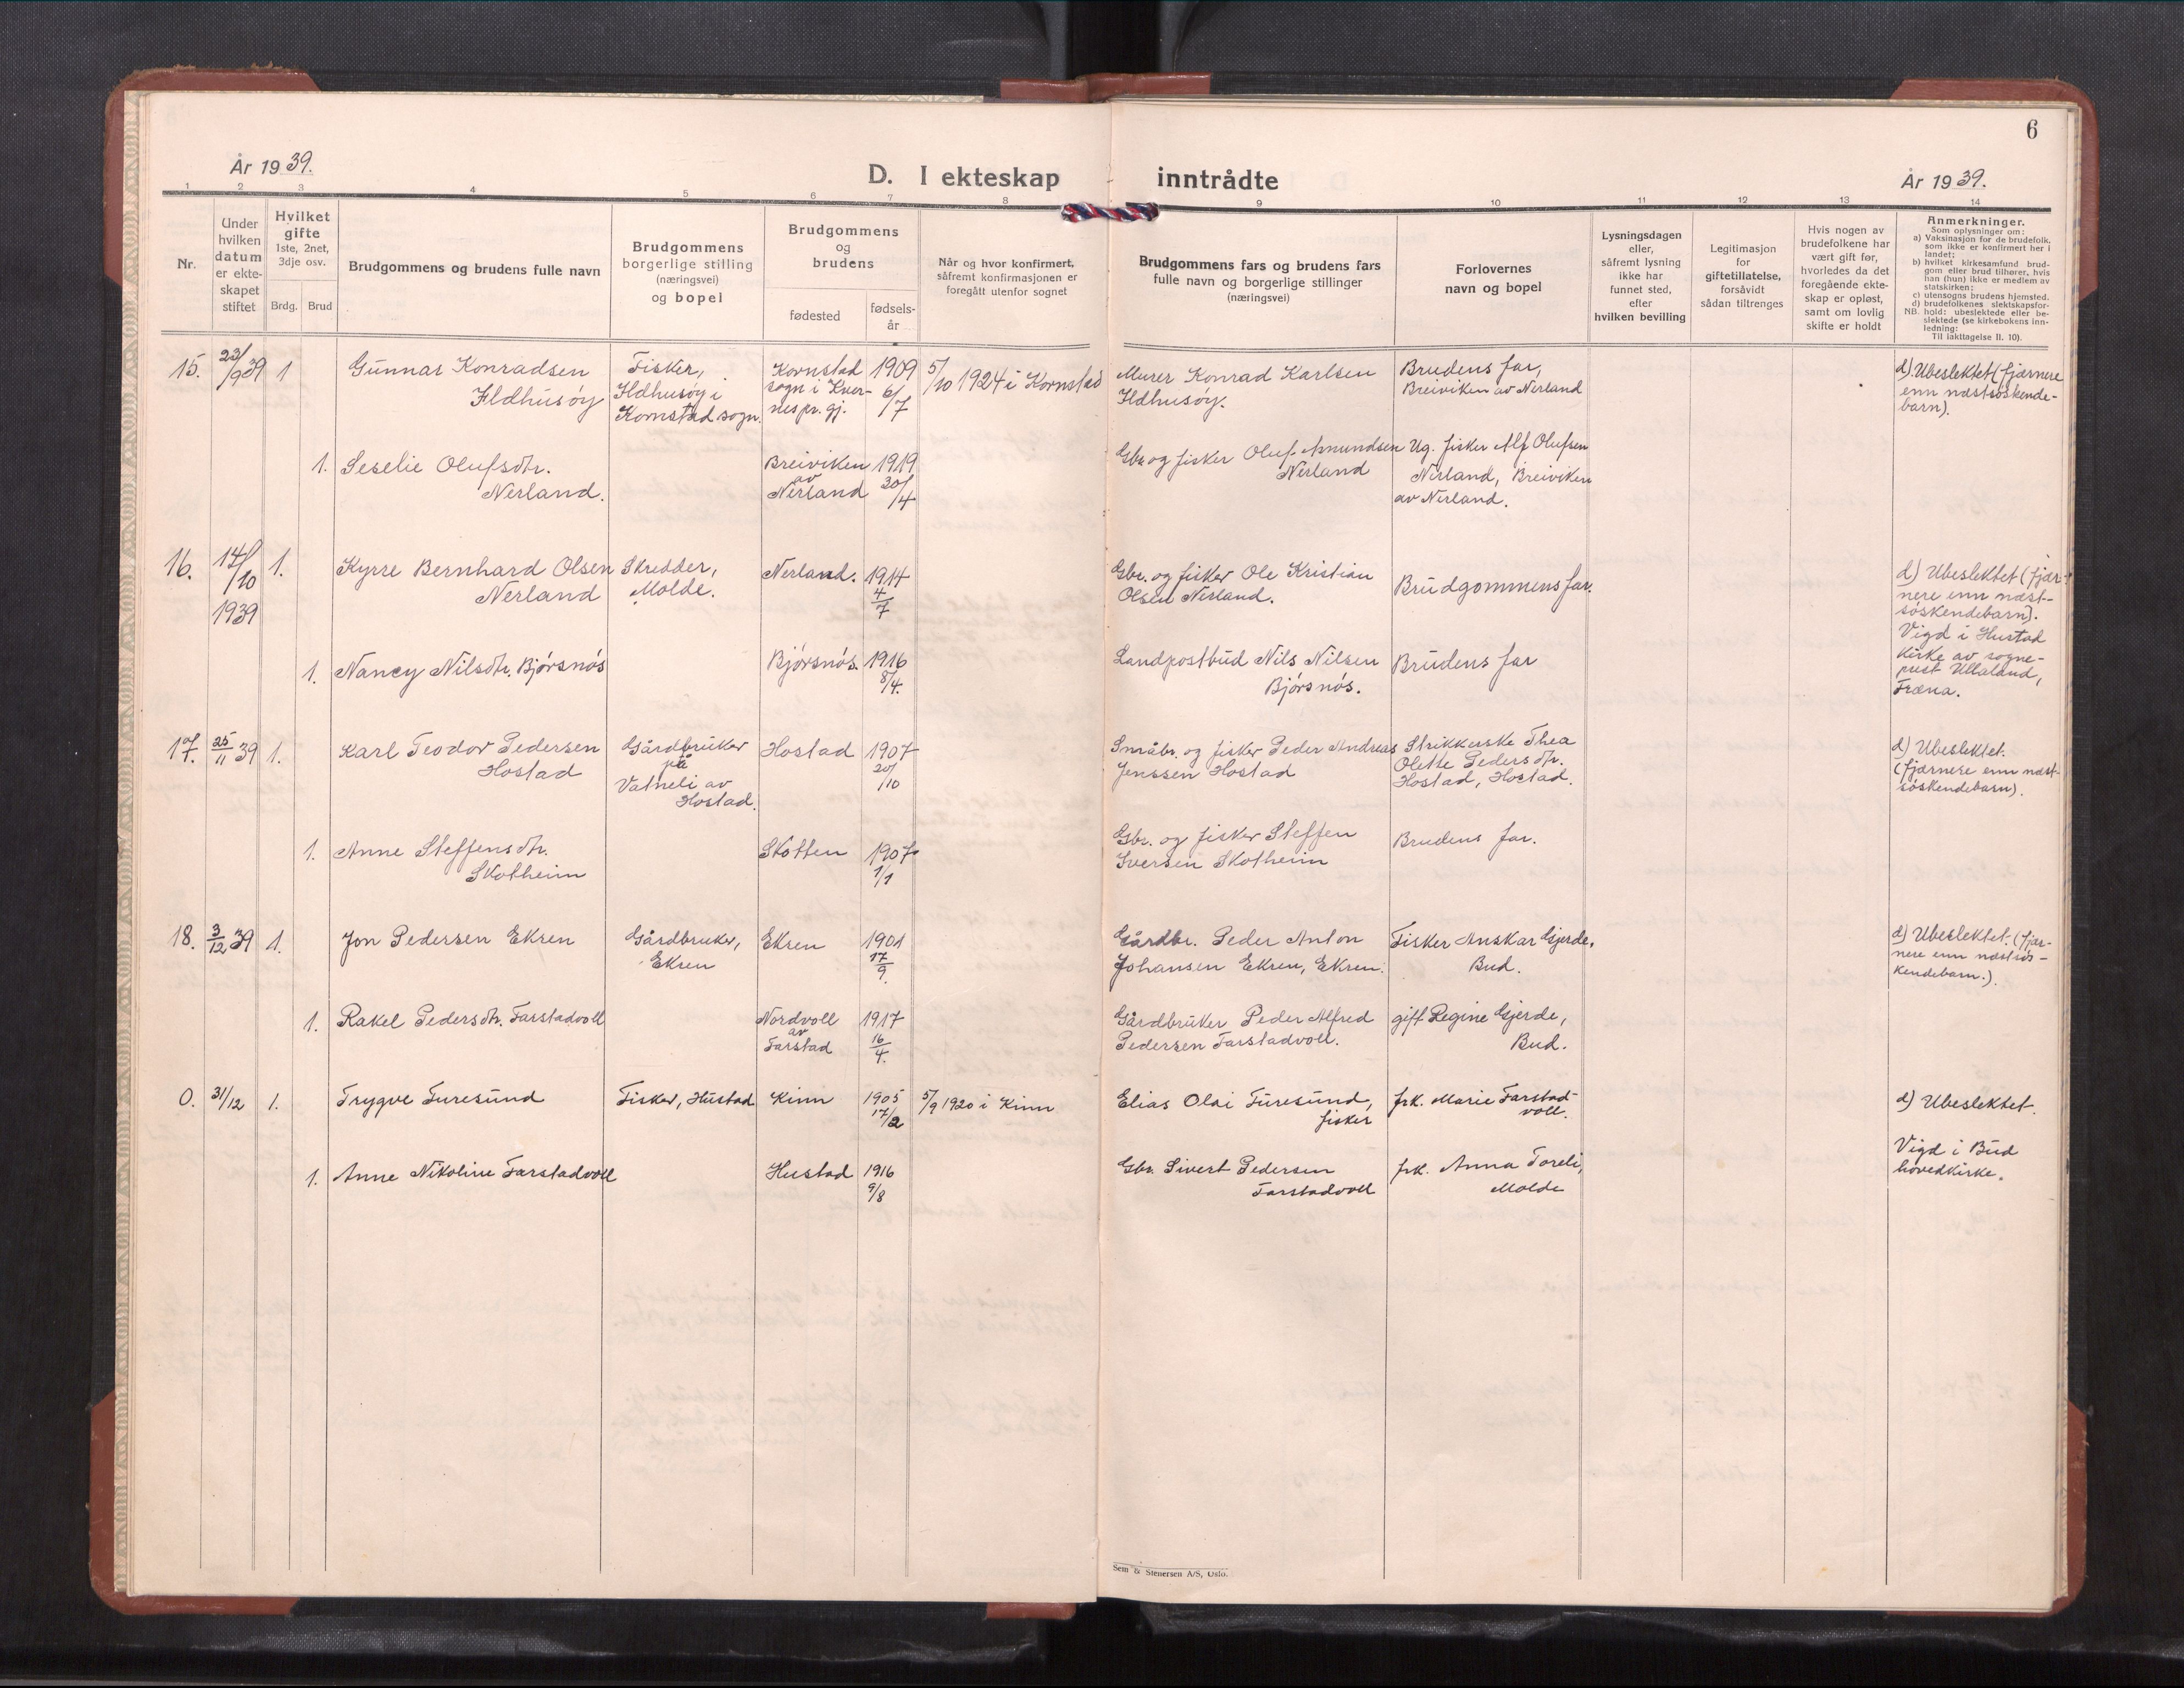 6
År 1939.
D. I ekteskap inntrådte
År 1939.
1 2 3 4 5 6 7 8 9 10 11 12 13 14
Nr.
Under
hvilken
datum
er ekte-
skapet
stiftet
Hvilket
gifte
1ste, 2net,
3dje osv.
Brdg. Brud
Brudgommens og brudens fulle navn
Brudgommens
borgerlige stilling
(næringsvei)
og bopel
Brudgommens
og
brudens
fødested
fødsels-
år
Når og hvor konfirmert,
såfremt konfirmasjonen er
foregått utenfor sognet
Brudgommens fars og brudens fars
fulle navn og borgerlige stillinger
(næringsvei)
Forlovernes
navn og bopel
Lysningsdagen
eller,
såfremt lysning
ikke har
funnet sted,
efter
hvilken bevilling
Legitimasjon
for
giftetillatelse,
forsåvidt
sådan tiltrenges
Hvis nogen av
brudefolkene har
vært gift før,
hvorledes da det
foregående ekte-
skap er opløst,
samt om lovlig
skifte er holdt
Anmerkninger.
Som oplysninger om:
a) Vaksinasjon for de brudefolk,
som ikke er konfirmert her i
landet;
b) hvilket kirkesamfund brud-
gom eller brud tilhører, hvis
han (hun) ikke er medlem av
statskirken;
c) utensogns brudens hjemsted.
d) brudefolkenes slektskapsfor-
NB. hold: ubeslektede eller be-
slektede (se kirkebokens inn-
ledning:
Til iakttagelse II. 10).
15. 23/9 39 1
Gunnar Konradsen
Ildhusøy
Fisker,
Ildhusøy i
Kornstad sogn.
Kornstad
sogn i Kver-
nes pr. gj.
1909
6/7
5/10 1924 i Kornstad
Murer Konrad Karlsen
Ildhusøy.
Brudens far,
Breiviken av Nerland
d) Ubeslektet (fjærnere
enn næstsøskende-
barn).
1. Seselie Olufsdtr.
Nerland.
Breiviken
av
Nerland
1919
30/4
Gbr. og fisker Oluf Amundsen
Nerland
Ug. fisker Alf Olufsen
Nerland, Breiviken
av Nerland.
16. 14/10
1939
1.
Kyrre Bernhard Olsen
Nerland
Skredder,
Molde.
Nerland.
1914
4/7
Gbr. og fisker Ole Kristian
Olsen Nerland.
Brudgommens far.
d) Ubeslektet (fjær-
nere enn næst-
søskendebarn).
Vigd i Hustad
kirke av sogne-
prest Ullaland,
Fræna.
1. Nancy Nilsdtr. Bjørsnøs
Bjørsnøs.
1916
8/4.
Landpostbud Nils Nilsen
Bjørsnøs.
Brudens far
17. 25/11 39 1.
Karl Teodor Pedersen
Hostad
Gårdbruker
på
Vatneli av
Hostad.
Hostad
1907
20/10
Småbr. og fisker Peder Andreas
Jenssen Hostad
Strikkerske Thea
Olette Pedersdtr.
Hostad, Hostad.
d) Ubeslektet.
(fjærnere enn næst-
søskendebarn).
1. Anne Steffensdtr.
Skotheim
Skotten
1907
1/1
Gbr. og fisker Steffen
Iversen Skotheim
Brudens far.
18. 3/12 39 1.
Jon Pedersen Ekren
Gårdbruker,
Ekren
Ekren
1901
17/9.
Gårdbr. Peder Anton
Johansen Ekren, Ekren.
Fisker Anskar Gjerde,
Bud.
d) Ubeslektet. (fjær-
nere enn næstsøs-
kendebarn.)
1. Rakel Pedersdtr. Farstadvoll
Nordvoll
av
Farstad
1917
16/4.
Gårdbruker Peder Alfred
Pedersen Farstadvoll.
gift Regine Gjerde,
Bud.
0. 31/12 1.
Trygve Furesund
Fisker, Hustad
Kinn
1905
17/2
5/9 1920 i Kinn
Elias Olai Furesund,
fisker
frk. Marie Farstad-
voll.
d) Ubeslektet.
1. Anne Nikoline Farstadvoll
Hustad
1916
9/8
Gbr. Sivert Pedersen
Farstadvoll
frk. Anna Toreli,
Molde
Vigd i Bud
hovedkirke.
Sem & Stenersen A/S, Oslo.